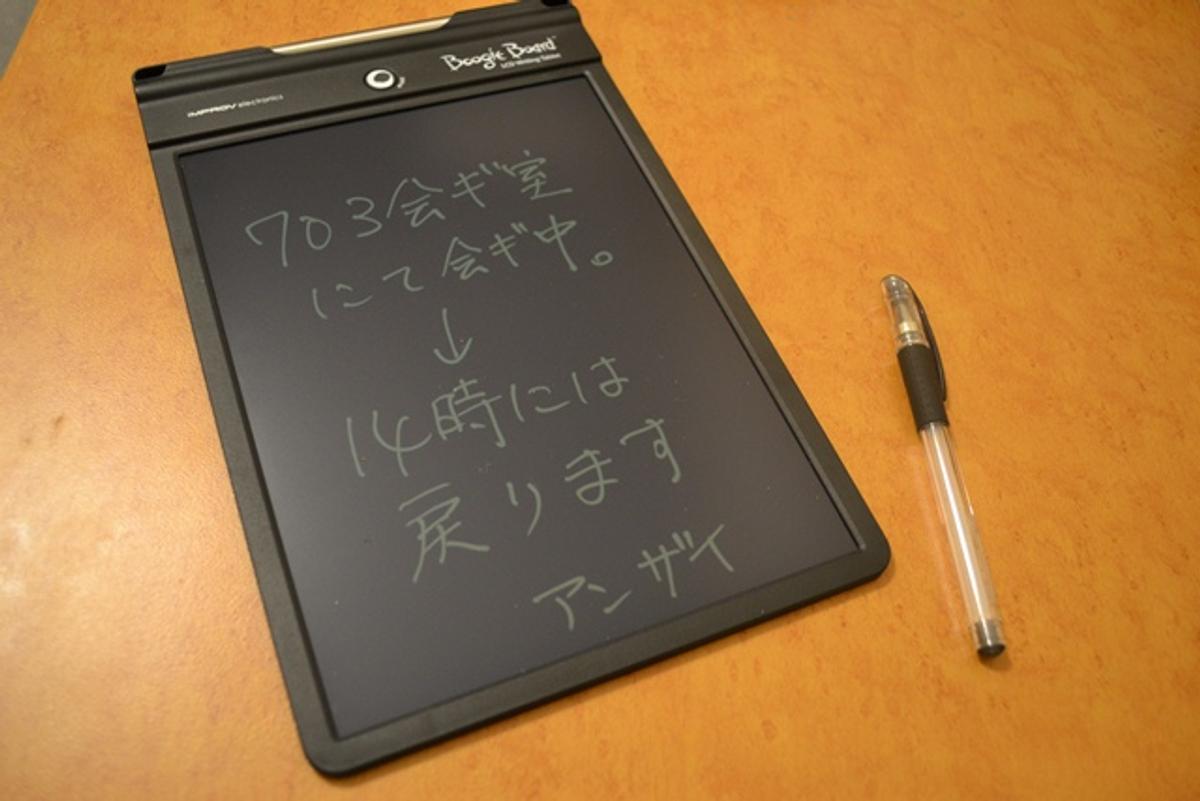 Boogie Board
LCD Writing Tablet
IMPROV electronics
703会ギ室
にて会ギ中。
↓
14時には
戻ります
アンザイ